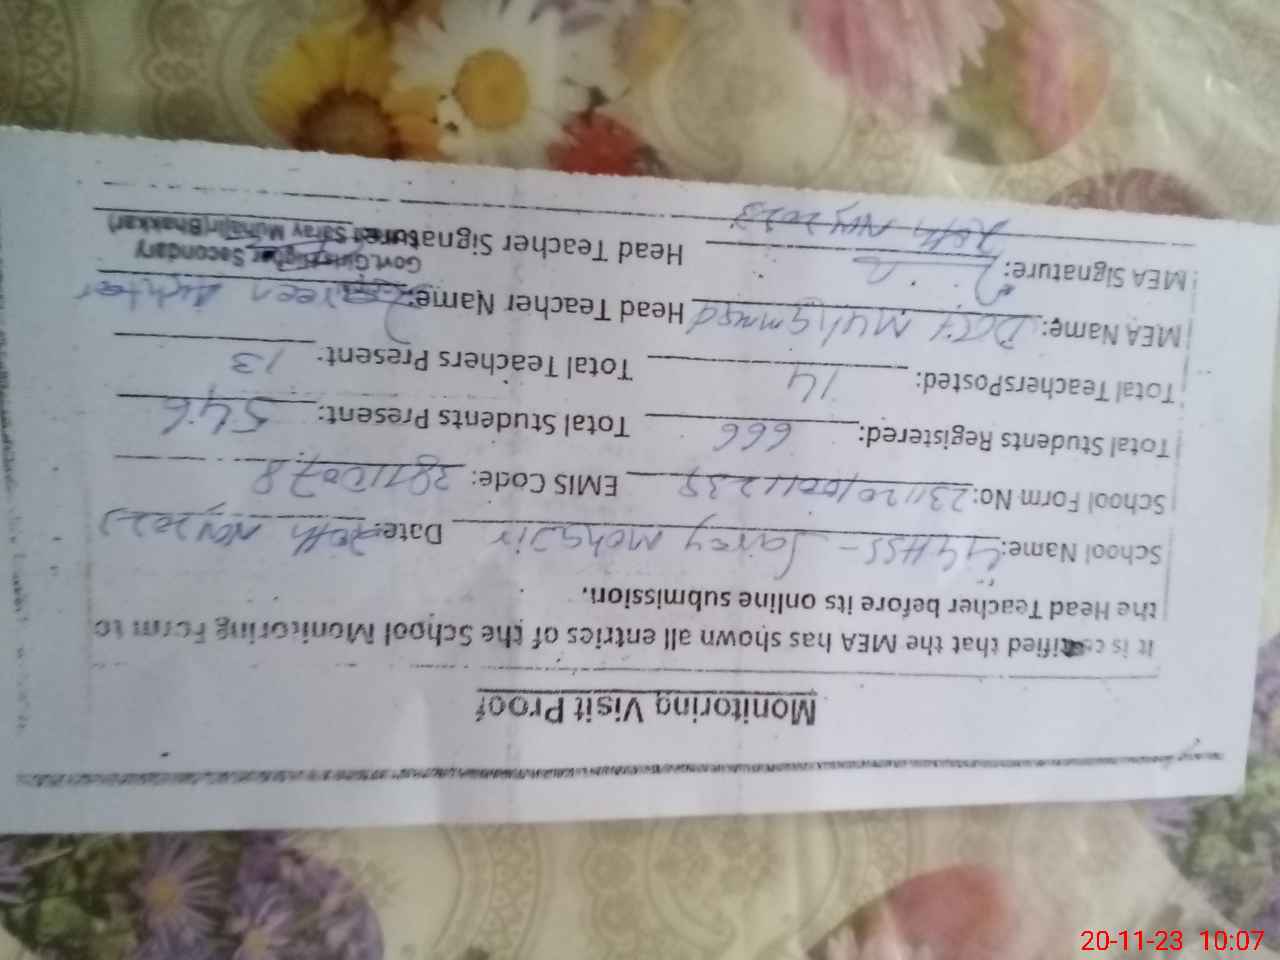 Monitoring Visit Proof
It is certified that the MEA has shown all entries of the School Monitoring Form to
the Head Teacher before its online submission.
School Name: GGHSS - Saray Mohajir Date: 20th Nov 2023
School Form No: EMIS Code:
Total Students Registered: 666 Total Students Present: 546
Total TeachersPosted: 14 Total Teachers Present: 13
MEA Name: Muhammad Head Teacher Name: Akhtar
MEA Signature: Head Teacher Signature:
Govt.Girls Higher Secondary
Saray Muhajir(Bhakkar)
20th Nov 2023
20-11-23 10:07